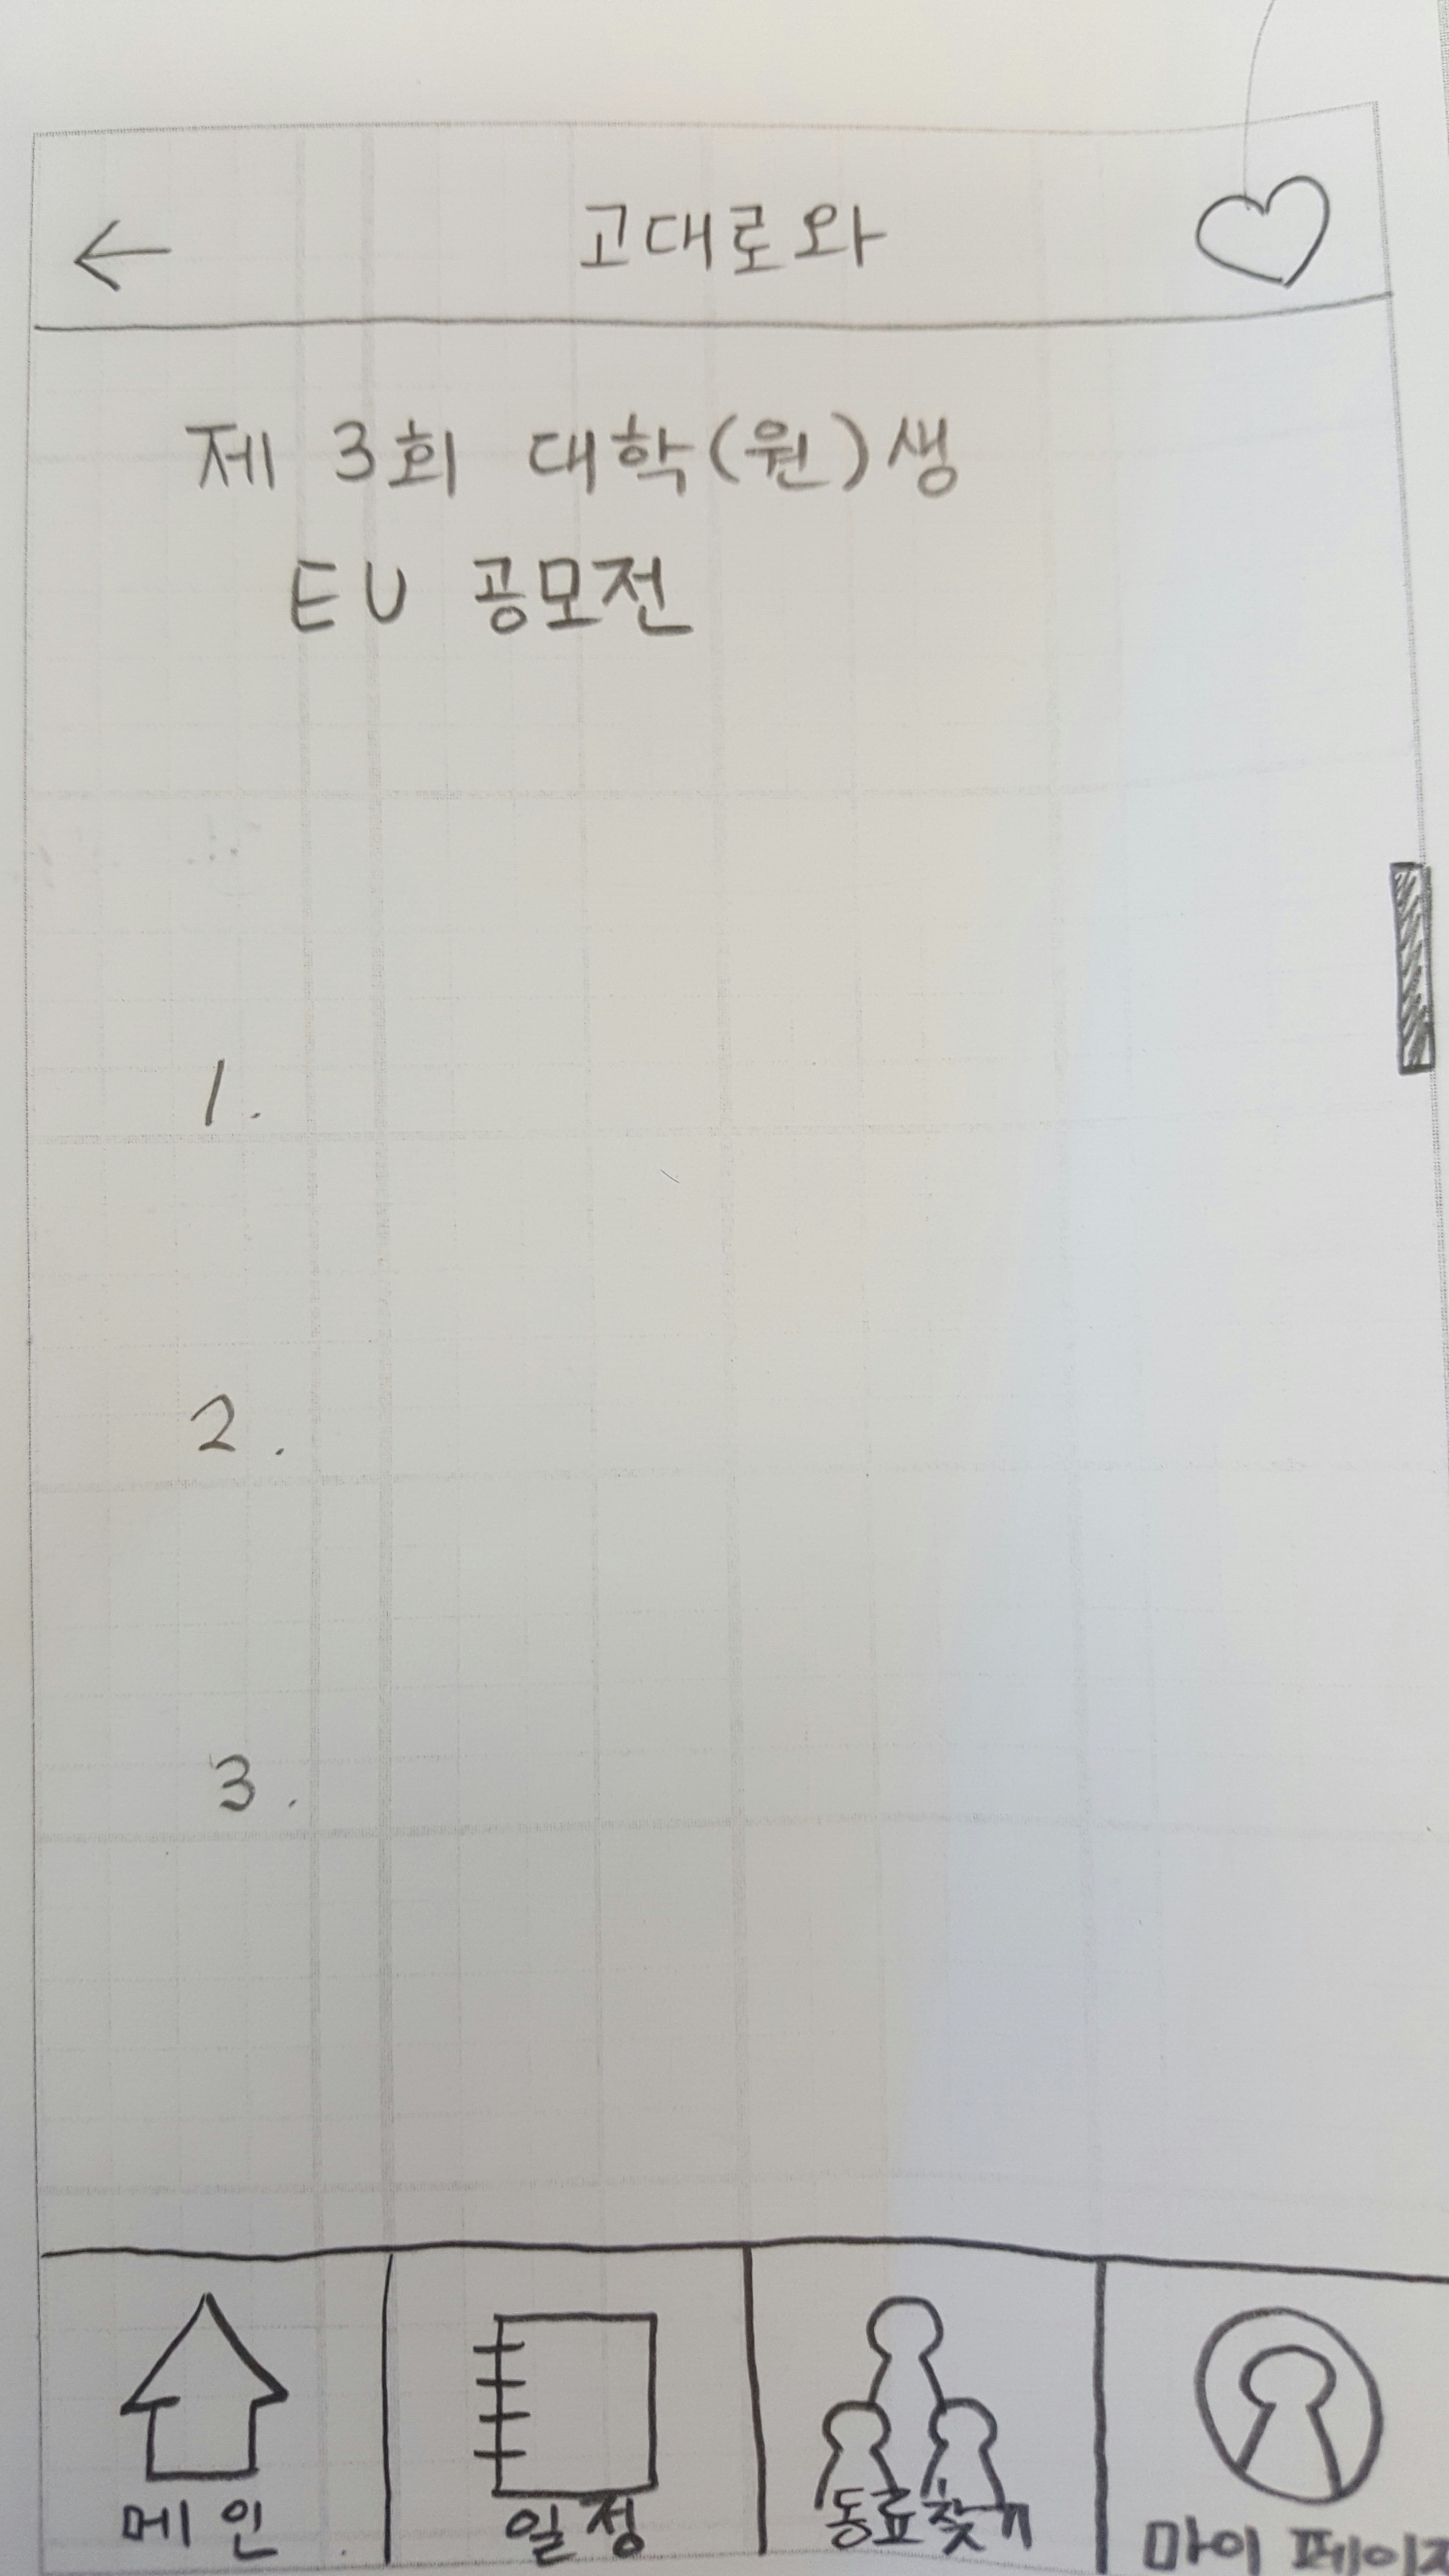 고대로와
제 3회 대학(원)생
EU 공모전
1.
2.
3.
메인
일정
동료찾기
마이 페이지